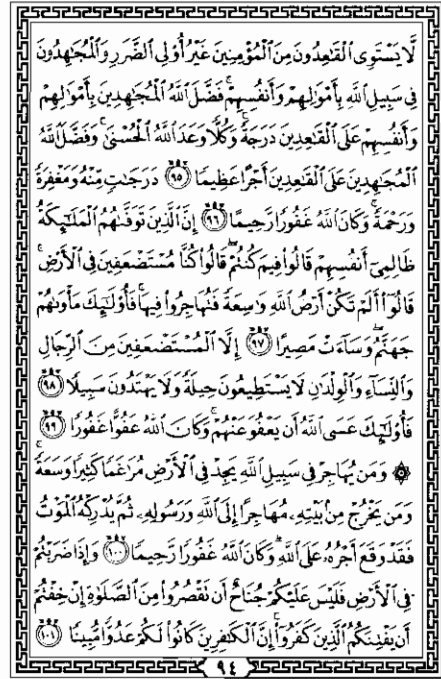 لَّا يَسْتَوِى ٱلْقَـٰعِدُونَ مِنَ ٱلْمُؤْمِنِينَ غَيْرُ أُو۟لِى ٱلضَّرَرِ وَٱلْمُجَـٰهِدُونَ
فِى سَبِيلِ ٱللَّهِ بِأَمْوَٰلِهِمْ وَأَنفُسِهِمْ ۚ فَضَّلَ ٱللَّهُ ٱلْمُجَـٰهِدِينَ بِأَمْوَٰلِهِمْ
وَأَنفُسِهِمْ عَلَى ٱلْقَـٰعِدِينَ دَرَجَةً ۚ وَكُلًّا وَعَدَ ٱللَّهُ ٱلْحُسْنَىٰ ۚ وَفَضَّلَ ٱللَّهُ
ٱلْمُجَـٰهِدِينَ عَلَى ٱلْقَـٰعِدِينَ أَجْرًا عَظِيمًا ٩٥ دَرَجَـٰتٍ مِّنْهُ وَمَغْفِرَةً
وَرَحْمَةً ۚ وَكَانَ ٱللَّهُ غَفُورًا رَّحِيمًا ٩٦ إِنَّ ٱلَّذِينَ تَوَفَّىٰهُمُ ٱلْمَلَـٰٓئِكَةُ
ظَالِمِىٓ أَنفُسِهِمْ قَالُوا۟ فِيمَ كُنتُمْ ۖ قَالُوا۟ كُنَّا مُسْتَضْعَفِينَ فِى ٱلْأَرْضِ ۚ
قَالُوٓا۟ أَلَمْ تَكُنْ أَرْضُ ٱللَّهِ وَٰسِعَةً فَتُهَاجِرُوا۟ فِيهَا ۚ فَأُو۟لَـٰٓئِكَ مَأْوَىٰهُمْ
جَهَنَّمُ ۖ وَسَآءَتْ مَصِيرًا ٩٧ إِلَّا ٱلْمُسْتَضْعَفِينَ مِنَ ٱلرِّجَالِ
وَٱلنِّسَآءِ وَٱلْوِلْدَٰنِ لَا يَسْتَطِيعُونَ حِيلَةً وَلَا يَهْتَدُونَ سَبِيلًا ٩٨
فَأُو۟لَـٰٓئِكَ عَسَى ٱللَّهُ أَن يَعْفُوَ عَنْهُمْ ۚ وَكَانَ ٱللَّهُ عَفُوًّا غَفُورًا ٩٩
۞ وَمَن يُهَاجِرْ فِى سَبِيلِ ٱللَّهِ يَجِدْ فِى ٱلْأَرْضِ مُرَٰغَمًا كَثِيرًا وَسَعَةً ۚ
وَمَن يَخْرُجْ مِنۢ بَيْتِهِۦ مُهَاجِرًا إِلَى ٱللَّهِ وَرَسُولِهِۦ ثُمَّ يُدْرِكْهُ ٱلْمَوْتُ
فَقَدْ وَقَعَ أَجْرُهُۥ عَلَى ٱللَّهِ ۗ وَكَانَ ٱللَّهُ غَفُورًا رَّحِيمًا ١٠٠ وَإِذَا ضَرَبْتُمْ
فِى ٱلْأَرْضِ فَلَيْسَ عَلَيْكُمْ جُنَاحٌ أَن تَقْصُرُوا۟ مِنَ ٱلصَّلَوٰةِ إِنْ خِفْتُمْ
أَن يَفْتِنَكُمُ ٱلَّذِينَ كَفَرُوٓا۟ ۚ إِنَّ ٱلْكَـٰفِرِينَ كَانُوا۟ لَكُمْ عَدُوًّا مُّبِينًا ١٠١
٩٤